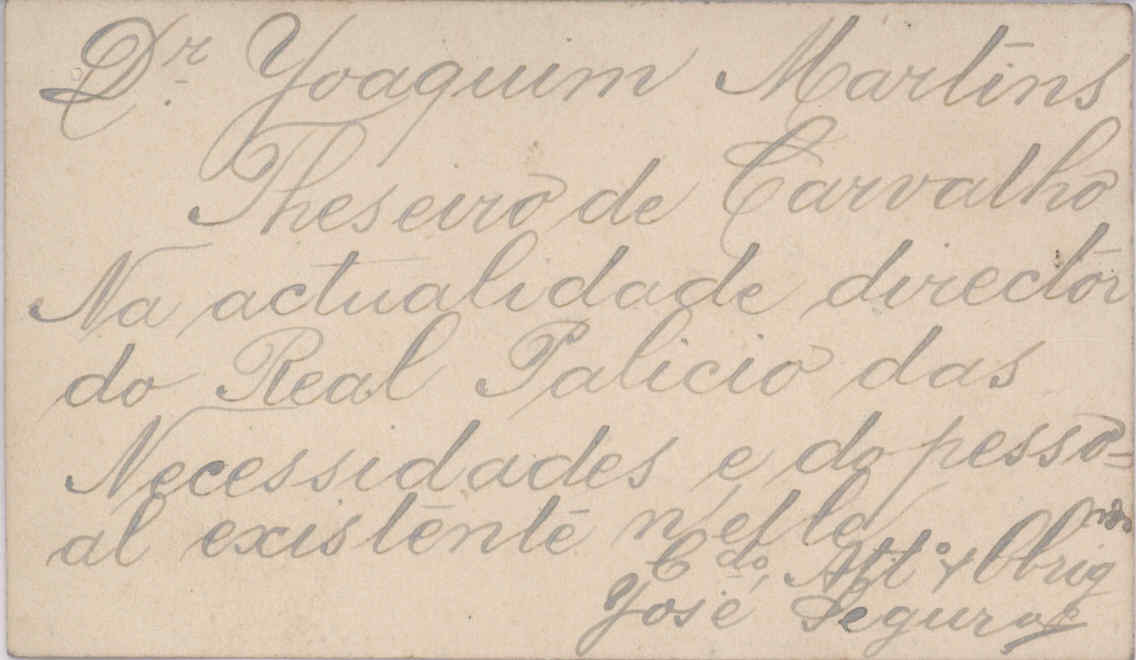 Dr. Yoaquim Martins
Theseiro de Carvalho
Na actualidade director
do Real Palicio das
Necessidades e do pesso=
al existente n'elle
Cdo, Atto y Obrigmo
José Segurae